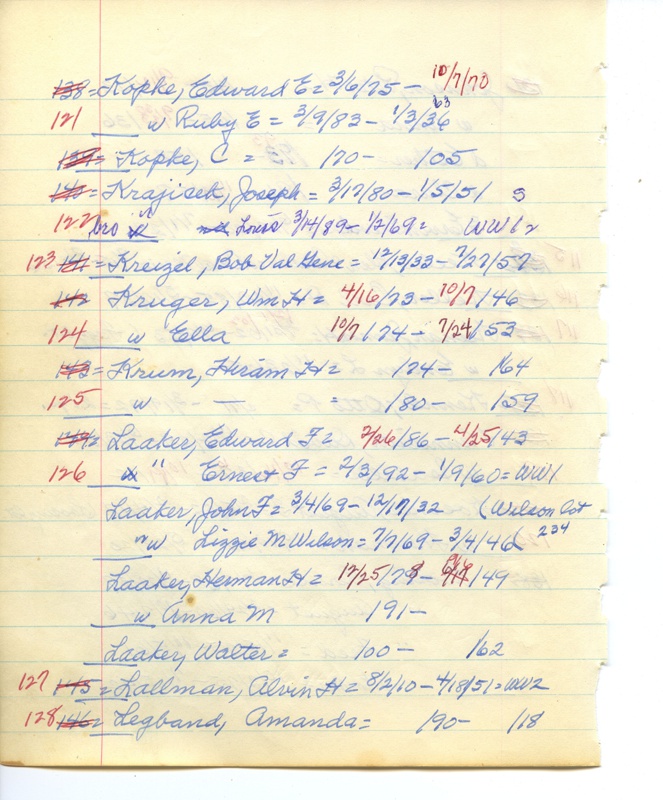 138 = Kopke, Edward E = 3/6/75 - 10/7/70
121 w Ruby E = 3/9/83 - 1/3/36 63
139 = Kopke, C = /70 - /05
140 = Krajicek, Joseph = 3/17/80 - 1/5/51 S
122 bro " Louis 3/14/89 - 1/2/69 = WW 1
123 141 = Kreizel, Bob Val Gene = 12/13/33 - 7/27/57
142 Kruger, Wm H = 4/16/73 - 10/7/46
124 w Ella 10/7/74 - 7/24/53
143 = Krum, Hiram H = /74 - /64
125 w — = /80 - /59
144 = Laaker, Edward F = 2/26/86 - 4/25/43
126 " Ernest F = 2/3/92 - 1/9/60 = WW1
Laaker, John F = 3/4/69 - 12/17/32 (Wilson lot
" w Lizzie M Wilson = 7/7/69 - 3/4/46 ( 234
Laaker, Herman H = 12/25/78 - /49
w Anna M /91 -
Laaker, Walter = /00 - /62
127 145 = Lallman, Alvin H = 8/2/10 - 4/18/51 = WW2
128 146 = Legband, Amanda = /90 - /18